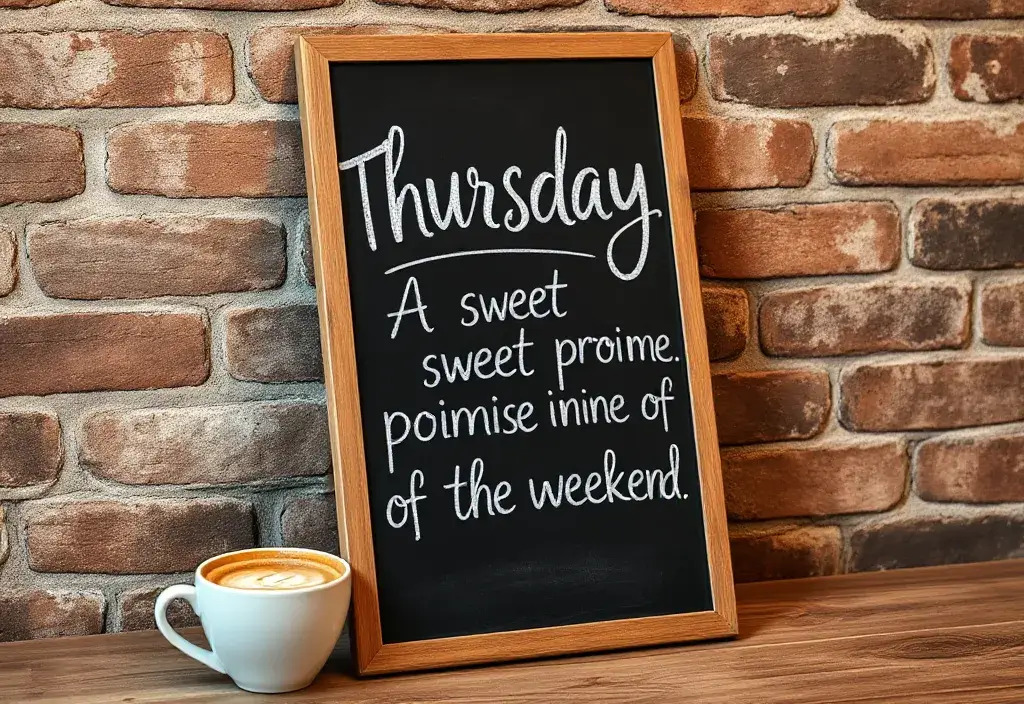 Thursday
A sweet
sweet proime.
poimise inine of
of the weekend.